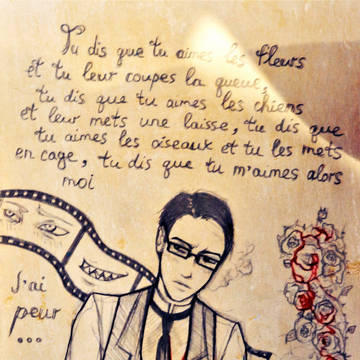 Tu dis que tu aimes les fleurs
et tu leur coupes la queue,
tu dis que tu aimes les chiens
et leur mets une laisse, tu dis que
tu aimes les oiseaux et tu les mets
en cage, tu dis que tu m'aimes alors
moi
J'ai
peur
...